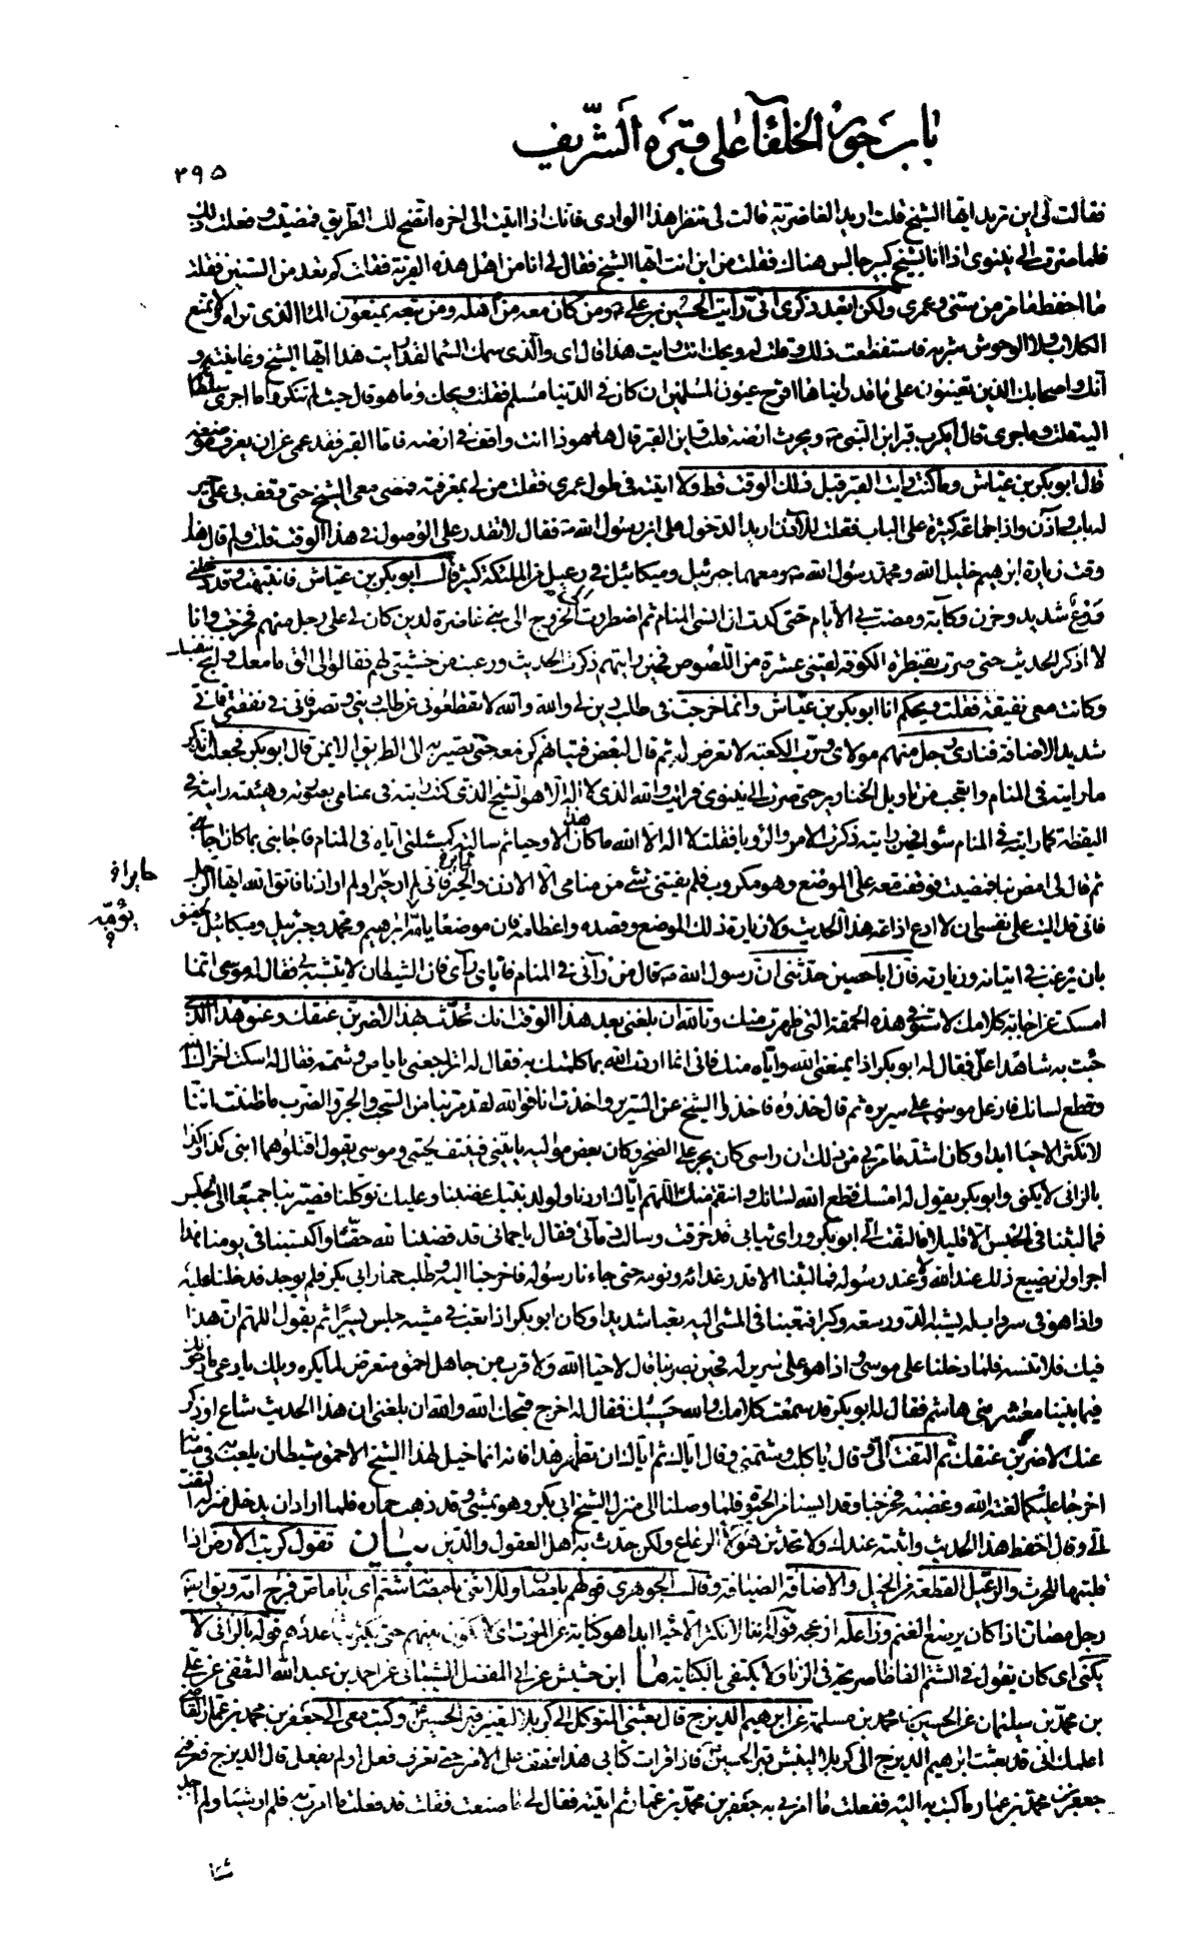 باب جور الخلفآء على قبره الشّريف
٣٩٥
فقالت لى اين تريد ايها الشيخ قلت اريد الغاضرية قالت لى تنظر هذا الوادى فانك اذا اتيت الى اخره اتضح لك الطريق فمضيت وفعلت ذلك
فلما صرت الى نينوى اذا انا بشيخ كبير جالس هناك فقلت من اين انت ايها الشيخ فقال لى انا من اهل هذه القرية فقلت كم تعد من السنين فقلت
ما احفظ ما مر من سنى وعمرى ولكن ابعد ذكرى انى رايت الحسين بن على ومن كان معه من اهله ومن تبعه يمنعون الماء الذى تراه ولا تمنع
الكلاب ولا الوحوش شربه فاستفظعت ذلك وقلت له ويحك انت رايت هذا قال اى والذى سمك السماء لقد رايت هذا ايها الشيخ وعاينته و
انك واصحابك الذين تعينون على ما قد راينا مما اقرح عيون المسلمين ان كان فى الدنيا مسلم فقلت ويحك وما هو قال حيث لم تنكروا ما اجرى سلطانكم
اليه قلت وما جرى قال ايكرب قبر ابن النبى ويحرث ارضه قلت واين القبر قال ها هو ذا انت واقف فى ارضه فاما القبر فقد عمى عن ان يعرف موضعه
قال ابو بكر بن عياش وما كنت رايت القبر قبل ذلك الوقت قط ولا اتيته فى طول عمرى فقلت من لى بمعرفته فمضى معى الشيخ حتى وقف بى على حير
له باب واذن واذا جماعة كثيرة على الباب فقلت للاذن اريد الدخول على ابن رسول الله فقال لا تقدر على الوصول فى هذا الوقت قلت ولم قال هذا
وقت زيارة ابرهيم خليل الله ومحمد رسول الله ومعهما جبرئيل وميكائيل فى رعيل من الملئكة كثير قال ابو بكر بن عياش فانتبهت وقد دخلنى
روع شديد وحزن وكآبة ومضت بى الايام حتى كدت ان انسى المنام ثم اضطررت الى الخروج الى بنى غاضرة لدين كان لى على رجل منهم فخرجت وانا
لا اذكر الحديث حتى صرت بقنطرة الكوفة لقينى عشرة من اللصوص فحين رايتهم ذكرت الحديث ورعبت من خشيتى لهم فقالوا لى الق ما معك وانج بنفسك
وكانت معى نفيقة فقلت ويحكم انا ابو بكر بن عياش وانما خرجت فى طلب دين لى والله والله لا تقطعونى عن طلب دينى وتضرونى فى نفقتى فانى
شديد الاضاقة فنادى رجل منهم مولاى ورب الكعبة لا تعرض له ثم قال لبعض فتيانهم كن معه حتى تصير به الى الطريق الايمن قال ابو بكر فجعلت اتذكر
ما رايته فى المنام واتعجب من تاويل الخنازير حتى صرت الى نينوى فرايت والله الذى لا اله الا هو الشيخ الذى كنت رايته فى منامى بصورته وهيئته رايته فى
اليقظة كما رايته فى المنام سواء فحين رايته ذكرت الامر والرؤيا فقلت لا اله الا الله ما كان هذا الا وحيا ثم سالته كمسئلتى اياه فى المنام فاجابنى بما كان اجابنى
ثم قال لى امض بنا فمضيت فوقفت معه على الموضع وهو مكروب فلم يفتنى شئ من منامى الا الاذن والحير فانى لم ار حيرا ولم ار اذنا فاتق الله ايها الرجل
فانى قد اليت على نفسى ان لا ادع اذاعة هذا الحديث ولا زيارة ذلك الموضع وقصده واعظامه فان موضعا ياتيه ابرهيم ومحمد وجبرئيل وميكائيل لحقيق
بان يرغب فى اتيانه وزيارته فان ابا حصين حدثنى ان رسول الله قال من رآنى فى المنام فاياى راى فان الشيطان لا يتشبه بى فقال له موسى انما
امسكت عن اجابة كلامك لاستوفى هذه الحمقة التى ظهرت منك وتالله ان بلغنى بعد هذا الوقت انك تحدث بهذا لاضربن عنقك وعنق هذا الذى
جئت به شاهدا على فقال له ابو بكر اذا يمنعنى الله واياه منك فانى انما اردت الله بما كلمتك به فقال له اتراجعنى يا ماص وشتمه فقال له اسكت اخزاك الله
وقطع لسانك فارعد موسى على سريره ثم قال خذوه فاخذوا الشيخ عن السرير واخذت انا فوالله لقد مر بنا من السحب والجر والضرب ما ظننت اننا
لا نكثر الاحياء ابدا وكان اشد ما مر بى من ذلك ان راسى كان يجر على الصخر وكان بعض مواليه ياتينى فينتف لحيتى وموسى يقول اقتلوهما ابنى كذا وكذا
بالزانى لا يكنى وابو بكر يقول له امسك قطع الله لسانك وانتقم منك اللهم اياك اردنا ولولد نبيك غضبنا وعليك توكلنا فصير بنا جميعا الى الحبس
فما لبثنا فى الحبس الا قليلا فالتفت الى ابو بكر وراى ثيابى قد خرقت وسالت دمائى فقال يا حمانى قد قضينا لله حقا واكتسبنا فى يومنا هذا
اجرا ولن يضيع ذلك عند الله ولا عند رسوله فما لبثنا الا قدر غدائه ونومه حتى جاءنا رسوله فاخرجنا اليه وطلب حمار ابى بكر فلم يوجد فدخلنا عليه
واذا هو فى سرداب له يشبه الدور سعة وكبرا فتعبنا فى المشى اليه تعبا شديدا وكان ابو بكر اذا تعب فى مشيه جلس يسيرا ثم يقول اللهم ان هذا
فيك فلا تنسه فلما دخلنا على موسى واذا هو على سرير له فحين بصر بنا قال لا حيا الله ولا قرب من جاهل احمق متعرض لما يكره ويلك يا دعى ما دخولك
فيما بيننا معشر بنى هاشم فقال له ابو بكر قد سمعت كلامك والله حسبك فقال له اخرج قبحك الله والله ان بلغنى ان هذا الحديث شاع او ذكر
عنك لاضربن عنقك ثم التفت الى وقال يا كلب وشتمنى وقال اياك ثم اياك ان تظهر هذا فانه انما خيل لهذا الشيخ الاحمق شيطان يلعب به فى منامه
اخرجا عليكما لعنة الله وغضبه فخرجنا وقد ايسنا من الحيوة فلما وصلنا الى منزل الشيخ ابى بكر وهو يمشى وقد ذهب حماره فلما اراد ان يدخل منزله التفت
الى وقال احفظ هذا الحديث واثبته عندك ولا تحدثن هؤلاء الرعاع ولكن حدث به اهل العقول والدين بيان تقول كربت الارض اذا
قلبتها للحرث والرعيل القطعة من الخيل والاضاقة الضيافة وقال الجوهرى قولهم يا مصان وللانثى يا مصانة شتم اى يا ماص فرج امه ويق ايضا
رجل مصان اذا كان يرضع الغنم وزاعله ازعجه قوله لا نكثر الاحياء ابدا هو كناية عن الموت اى لا نكون بينهم حتى يكثر بنا عددهم قوله بالزانى لا
يكنى اى كان يقول فى الشتم الفاظا صريحة فى الزنا ولا يكتفى بالكناية ما ابن خشيش عن ابى المفضل الشيبانى عن احمد بن عبد الله الثقفى عن على
بن محمد بن سليمان عن الحسين بن محمد بن مسلمة عن ابرهيم الديزج قال بعثنى المتوكل الى كربلا لتغيير قبر الحسين وكتب معى الى جعفر بن محمد بن عمار القاضى
اعلمك انى قد بعثت ابرهيم الديزج الى كربلا لنبش قبر الحسين فاذا قرات كتابى هذا فقف على الامر حتى تعرف فعل او لم يفعل قال الديزج فعرفنى
جعفر بن محمد بن عمار ما كتب به اليه ففعلت ما امرنى به جعفر بن محمد بن عمار ثم اتيته فقال لى ما صنعت فقلت قد فعلت ما امرت به فلم ار شيئا ولم اجد